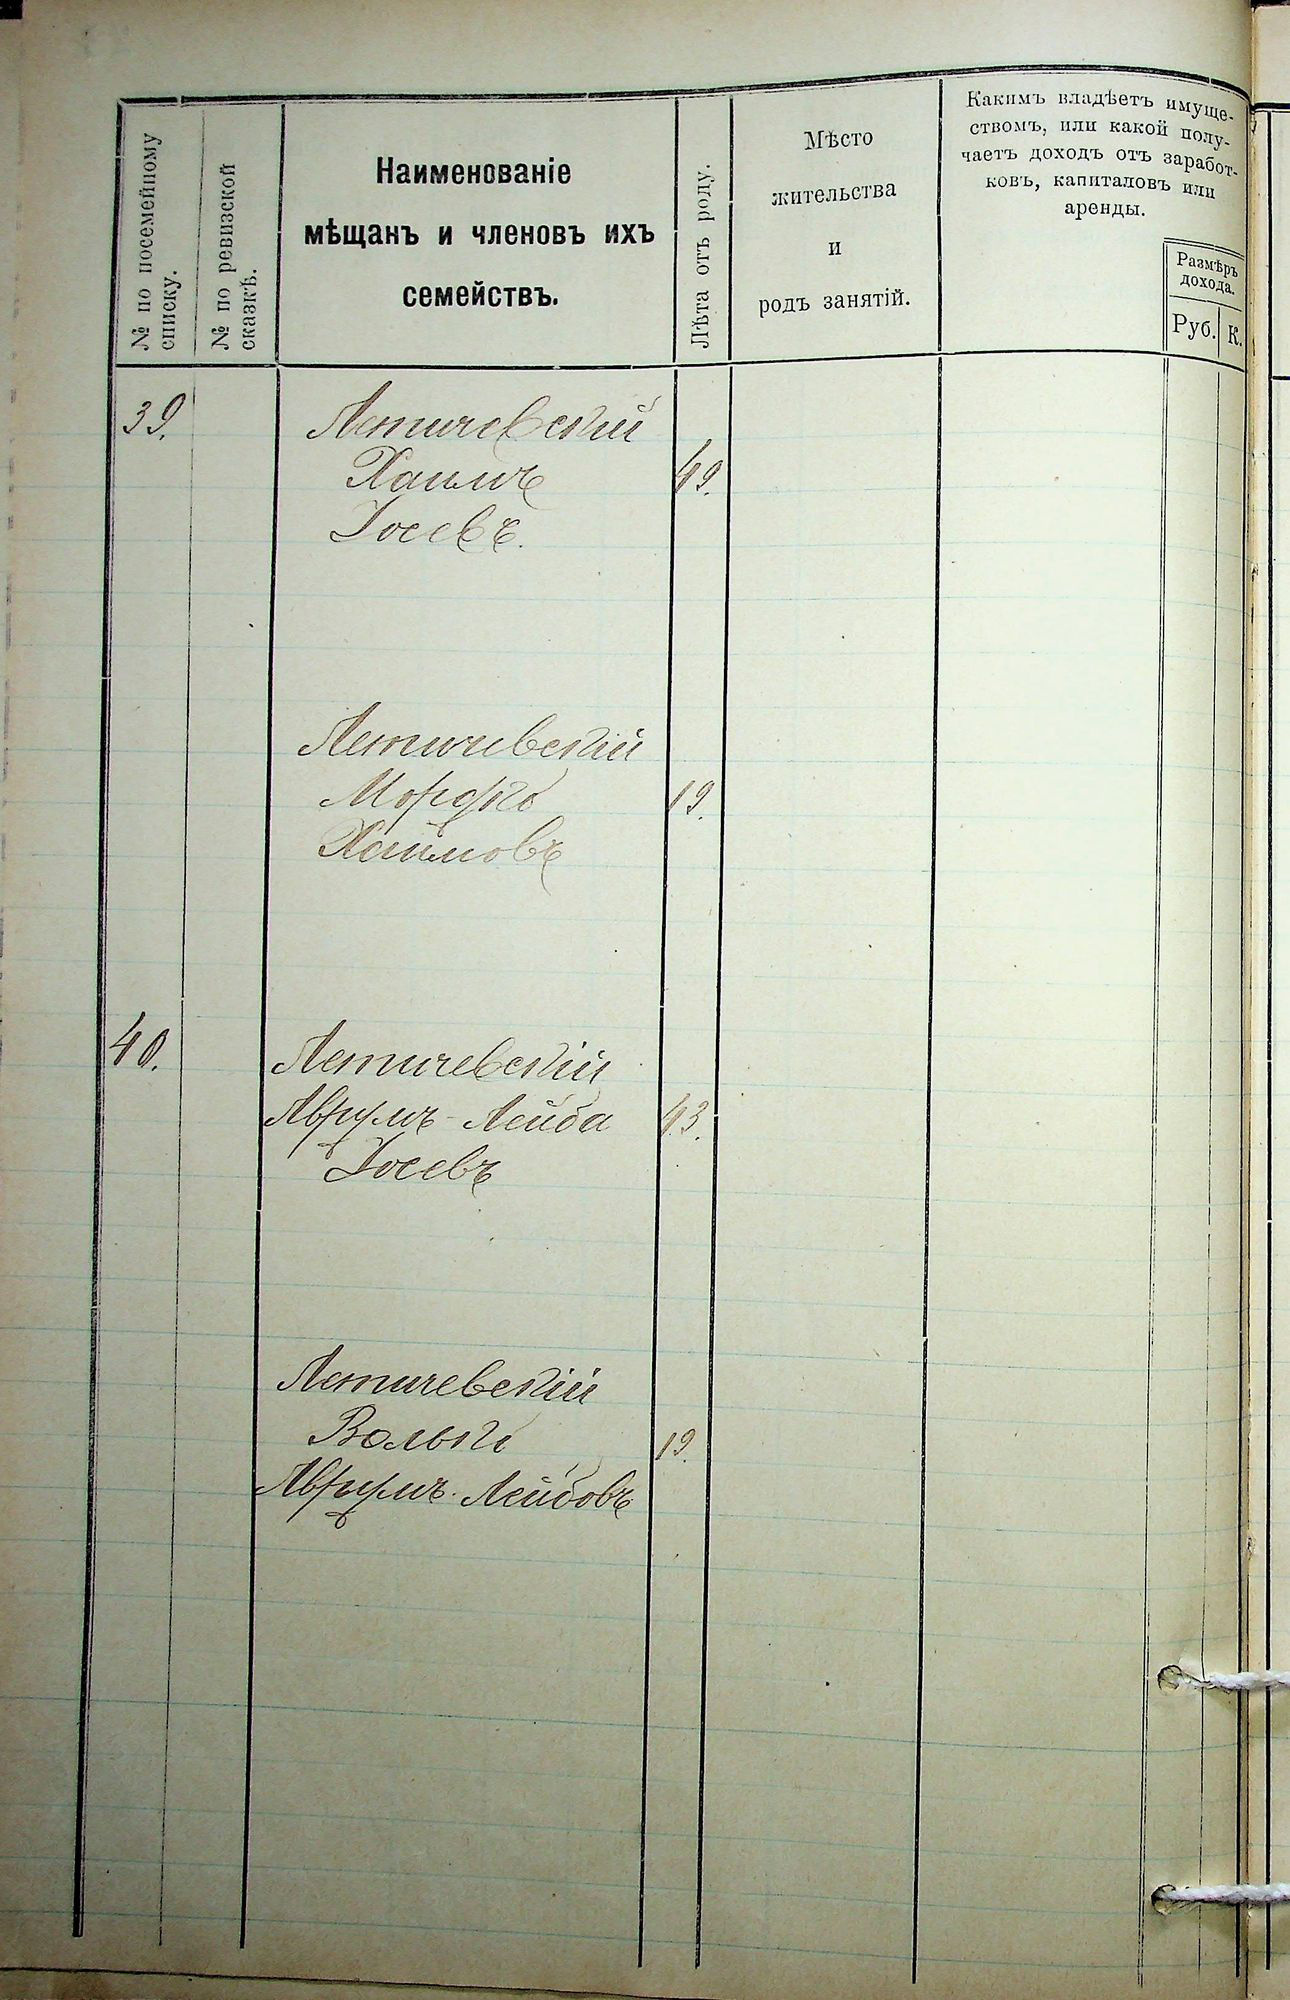 № по посемейному
списку.
№ по ревизской
сказкѣ.
Наименованіе
мѣщанъ и членовъ ихъ
семействъ.
Лѣта отъ роду.
Мѣсто
жительства
и
родъ занятій.
Какимъ владѣетъ имуще-
ствомъ, или какой полу-
чаетъ доходъ отъ заработ-
ковъ, капиталовъ или
аренды.
Размѣръ
дохода.
Руб. К.
39. Летичевскій
Хаимъ 49.
Іосевъ.
Летичевскій
Мордко 19.
Хаимовъ
40. Летичевскій
Аврумъ-Лейба 43.
Іосевъ
Летичевскій
Волько 19.
Аврумъ-Лейбовъ